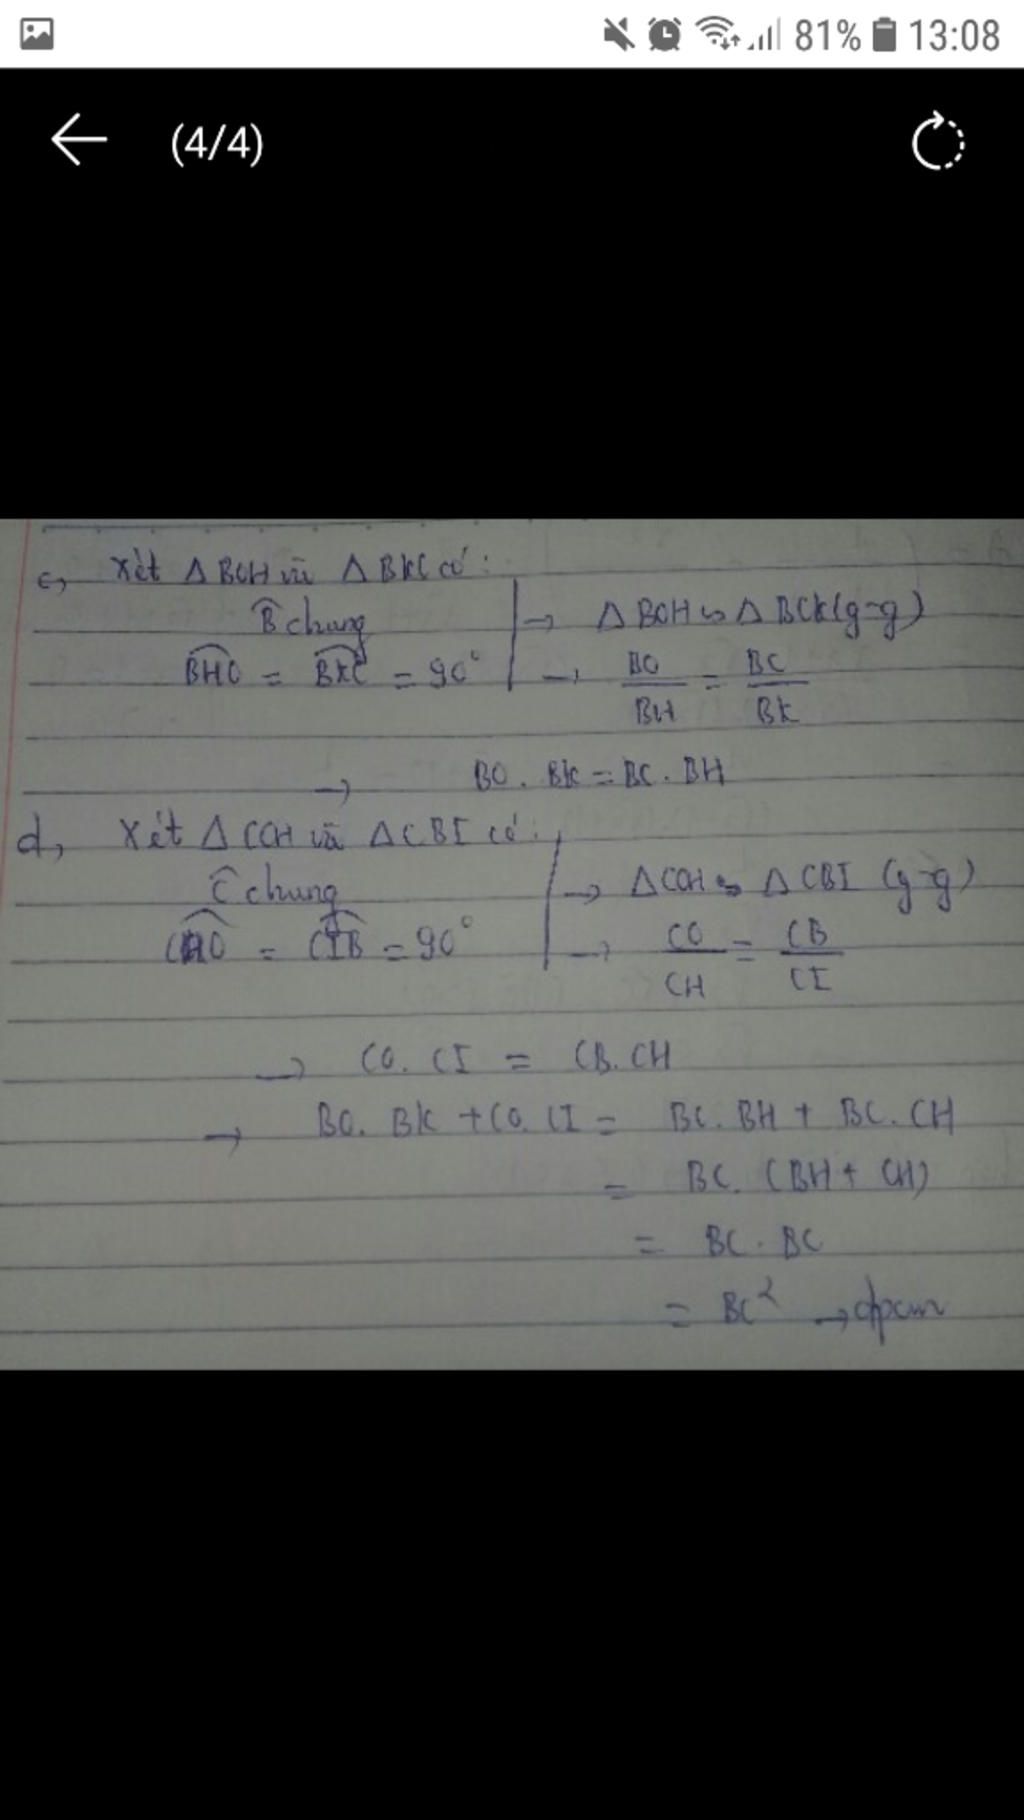 81% 13:08
(4/4)
c, Xét △BOH và △BKC có:
B̂ chung → △BOH ∽ △BCK (g-g)
BHO = BKC = 90° → BO/BH = BC/BK
→ BO. BK = BC. BH
d, Xét △COH và △CBI có:
Ĉ chung → △COH ∽ △CBI (g-g)
CHO = CIB = 90° → CO/CH = CB/CI
→ CO. CI = CB. CH
→ BO. BK + CO. CI = BC. BH + BC. CH
= BC. (BH + CH)
= BC. BC
= BC² → đpcm